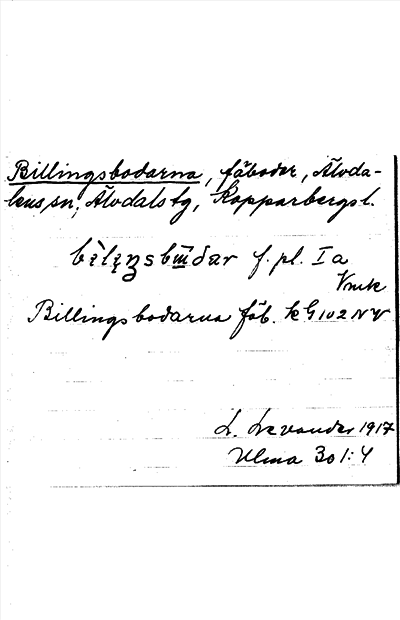 Billingsbodarna, fäbodar, Älvda-
lens sn, Älvdals tg, Kopparbergs l.
f. pl. I a
Billingsbodarna fäb. k G 102 NV
L. Levander 1917
Ulma 301:4